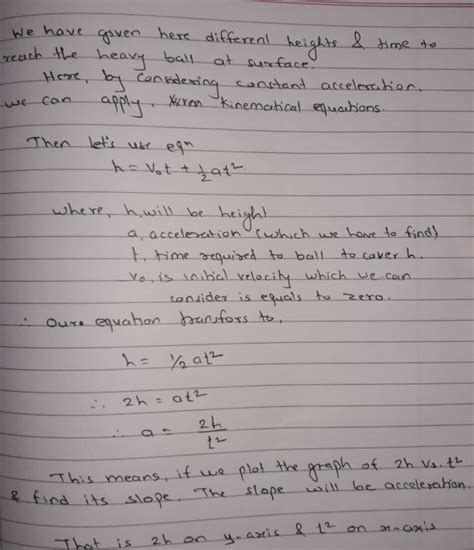 We have goven here different heights & time to
reach the heavy ball at surface.
Here, by considering constant acceleration,
we can apply, kinematical equations.
Then let's use eqⁿ
h = V₀t + ½at²
where, h, will be height
a, acceleration (which we have to find)
t, time required to ball to cover h.
V₀, is initial velocity which we can
consider is equals to zero.
∴ Oure equation transfors to,
h = ½ at²
∴ 2h = at²
∴ a = 2h/t²
This means, if we plot the graph of 2h Vs. t²
& find its slope. The slope will be acceleration.
That is 2h on y-axis & t² on x-axis